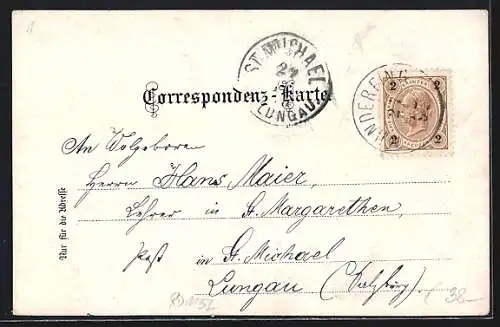 ST. MICHAEL
24
LUNGAU
Correspondenz-Karte.
2 2
2 2
An Wolgeboren
Herrn Hans Maier,
Lehrer in St. Margarethen,
Post in St. Michael
Lungau (Salzburg)
Nur für die Adresse
38-